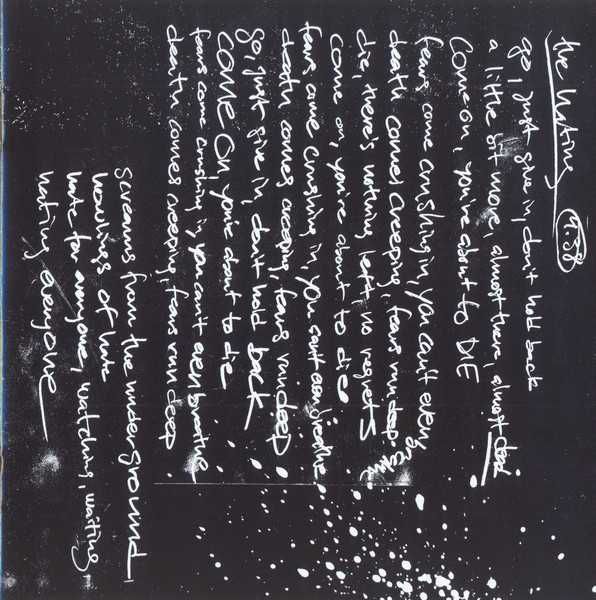 the hating
11.38
go, just give in, don't hold back
a little bit more, almost there, almost dead
Come on, you're about to DIE
fears come crushing in, you can't even breathe
death comes creeping, fears run deep
die, there's nothing left, no regrets
come on, you're about to die
fears come crushing in, you can't even breathe
death comes creeping, fears run deep
go, just give in, don't hold back
COME ON, you're about to die
fears come crushing in, you can't even breathe
death comes creeping, fears run deep
screams from the underground,
howlings of hate
hate for everyone, watching, waiting
hating everyone